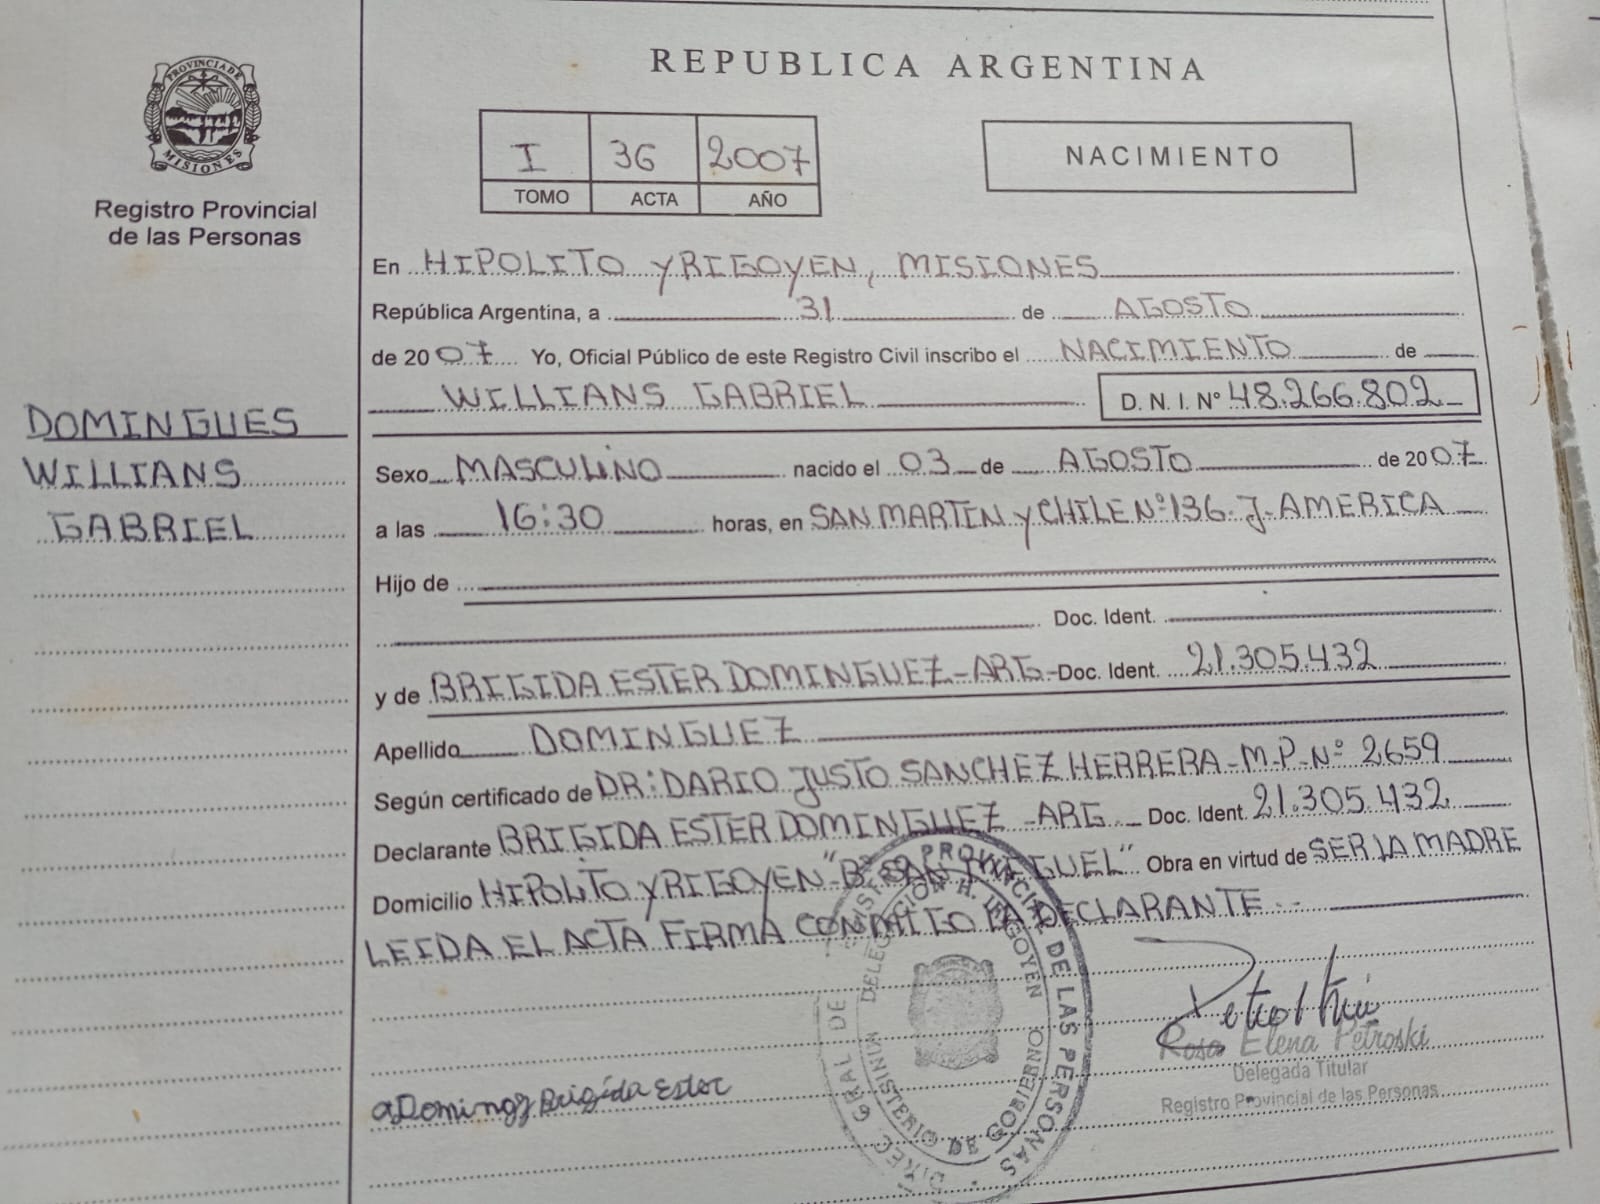 PROVINCIA DE
MISIONES
Registro Provincial
de las Personas
DOMINGUES
WILLIANS
GABRIEL
REPUBLICA ARGENTINA
I 36 2007
TOMO ACTA AÑO
NACIMIENTO
En HIPOLITO YRIGOYEN, MISIONES
República Argentina, a 31 de AGOSTO
de 2007 Yo, Oficial Público de este Registro Civil inscribo el NACIMIENTO de
WILLIANS GABRIEL D. N. I. Nº 48.266.802
Sexo MASCULINO nacido el 03 de AGOSTO de 2007
a las 16:30 horas, en SAN MARTIN Y CHILE Nº 136. J. AMERICA
Hijo de
Doc. Ident.
y de BRIGIDA ESTER DOMINGUEZ - ARG - Doc. Ident. 21.305.432
Apellido DOMINGUEZ
Según certificado de DR: DARIO JUSTO SANCHEZ HERRERA - M.P. Nº 2659
Declarante BRIGIDA ESTER DOMINGUEZ - ARG Doc. Ident. 21.305.432
Domicilio HIPOLITO YRIGOYEN "Bº SAN MIGUEL" Obra en virtud de SER LA MADRE
LEIDA EL ACTA FIRMA CONMIGO LA DECLARANTE.-
DIREC. GRAL DE PROVINCIAL DE LAS PERSONAS
DELEGACIÓN H. IRIGOYEN
MINISTERIO DE GOBIERNO
Rosa Elena Petroski
Delegada Titular
Registro Provincial de las Personas
Brigida Ester